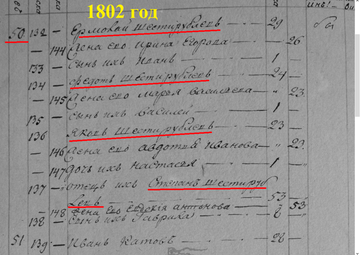 1802 год
50 132 Ермолай Шестирублевъ 29
144 Жена его Ирина Егорова 26
133 Сынъ ихъ Иванъ 1
134 Федотъ Шестирублевъ 24
145 Жена его Марья Васильева 23
135 Сынъ ихъ Василей 1
136 Яковъ Шестирублевъ 23
146 Жена его Авдотья Иванова 23
147 Дочь ихъ Настасья 1
137 Отецъ ихъ Степанъ Шестируб
левъ 53
148 Жена его Евдокия Антонова 53
138 Сынъ ихъ Гаврила 6
51 139 Иванъ 26